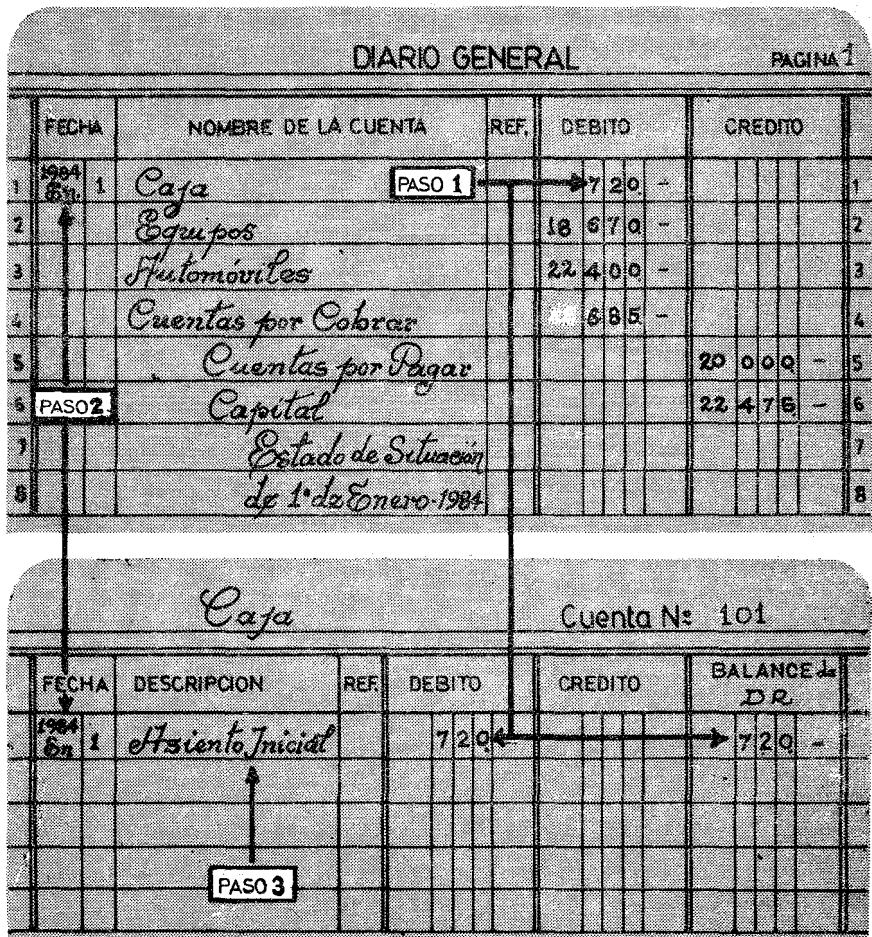 DIARIO GENERAL PAGINA 1
FECHA NOMBRE DE LA CUENTA REF. DEBITO CREDITO
1 1984 En. 1 Caja PASO 1 720 - 1
2 Equipos 18 670 - 2
3 Automóviles 22 400 - 3
4 Cuentas por Cobrar 685 - 4
5 Cuentas por Pagar 20 000 - 5
6 PASO 2 Capital 22 475 - 6
7 Estado de Situación 7
8 de 1º de Enero-1984 8
Caja Cuenta Nº 101
FECHA DESCRIPCION REF. DEBITO CREDITO BALANCE de DR
1984 En 1 Asiento Inicial 720 720 -
PASO 3